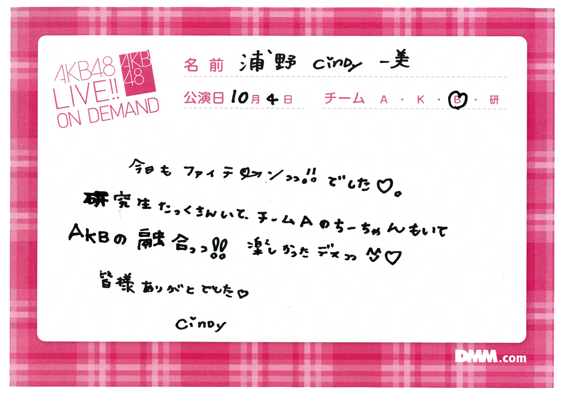 AKB48
LIVE!!
ON DEMAND
AKB
48
名前 浦野 cindy 一美
公演日 10月4日 チーム A・K・B・研
今日も ファイテ オンっっ!! でした♡。
研究生たっくさんいて、チームAのちーちゃんもいて
AKBの融合っっ!! 楽しかったデスっっ ♡
皆様ありがとでした♡
cindy
DMM.com